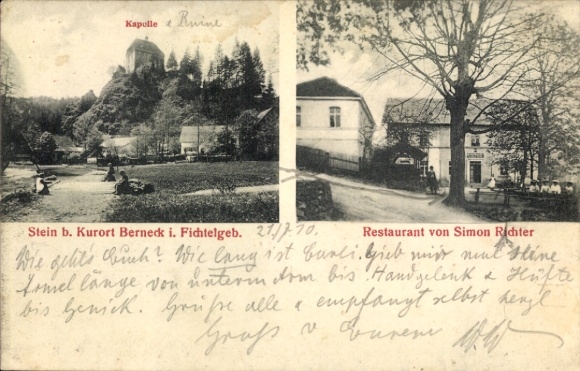 Kapelle & Ruine
Stein b. Kurort Berneck i. Fichtelgeb.
21/7.10.
Restaurant von Simon Richter
Wie geht's Euch? Wie lang ist Gieb mir mal
Ärmel länge von unterm Arm bis Handgelenk & Hüfte
bis Genick. Grüße alle & empfangt selbst herzl
Gruß v Eurem